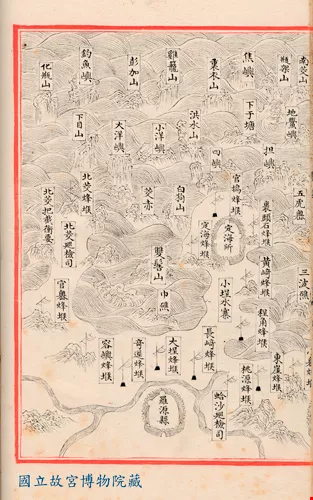 南茭山
瓶架山
焦嶼
東木山
雞籠山
彭加山
釣魚嶼
化瓶山
地鼊嶼
下干塘
洪水山
小洋嶼
大洋嶼
下目山
五虎鰲
四嶼
官塢烽堠
白狗山
茭赤
北茭烽堠
北茭把截衝要
裏頭石烽堠
定海所
定海烽堠
北茭巡檢司
黃崎烽堠
雙髻山
巾礁
三波礁
小埕水寨
官鰲烽堠
程角烽堠
長崎烽堠
大埕烽堠
奇達烽堠
容嶼烽堠
東崖烽堠
桃源烽堠
蛤沙巡檢司
羅源縣
國立故宮博物院藏